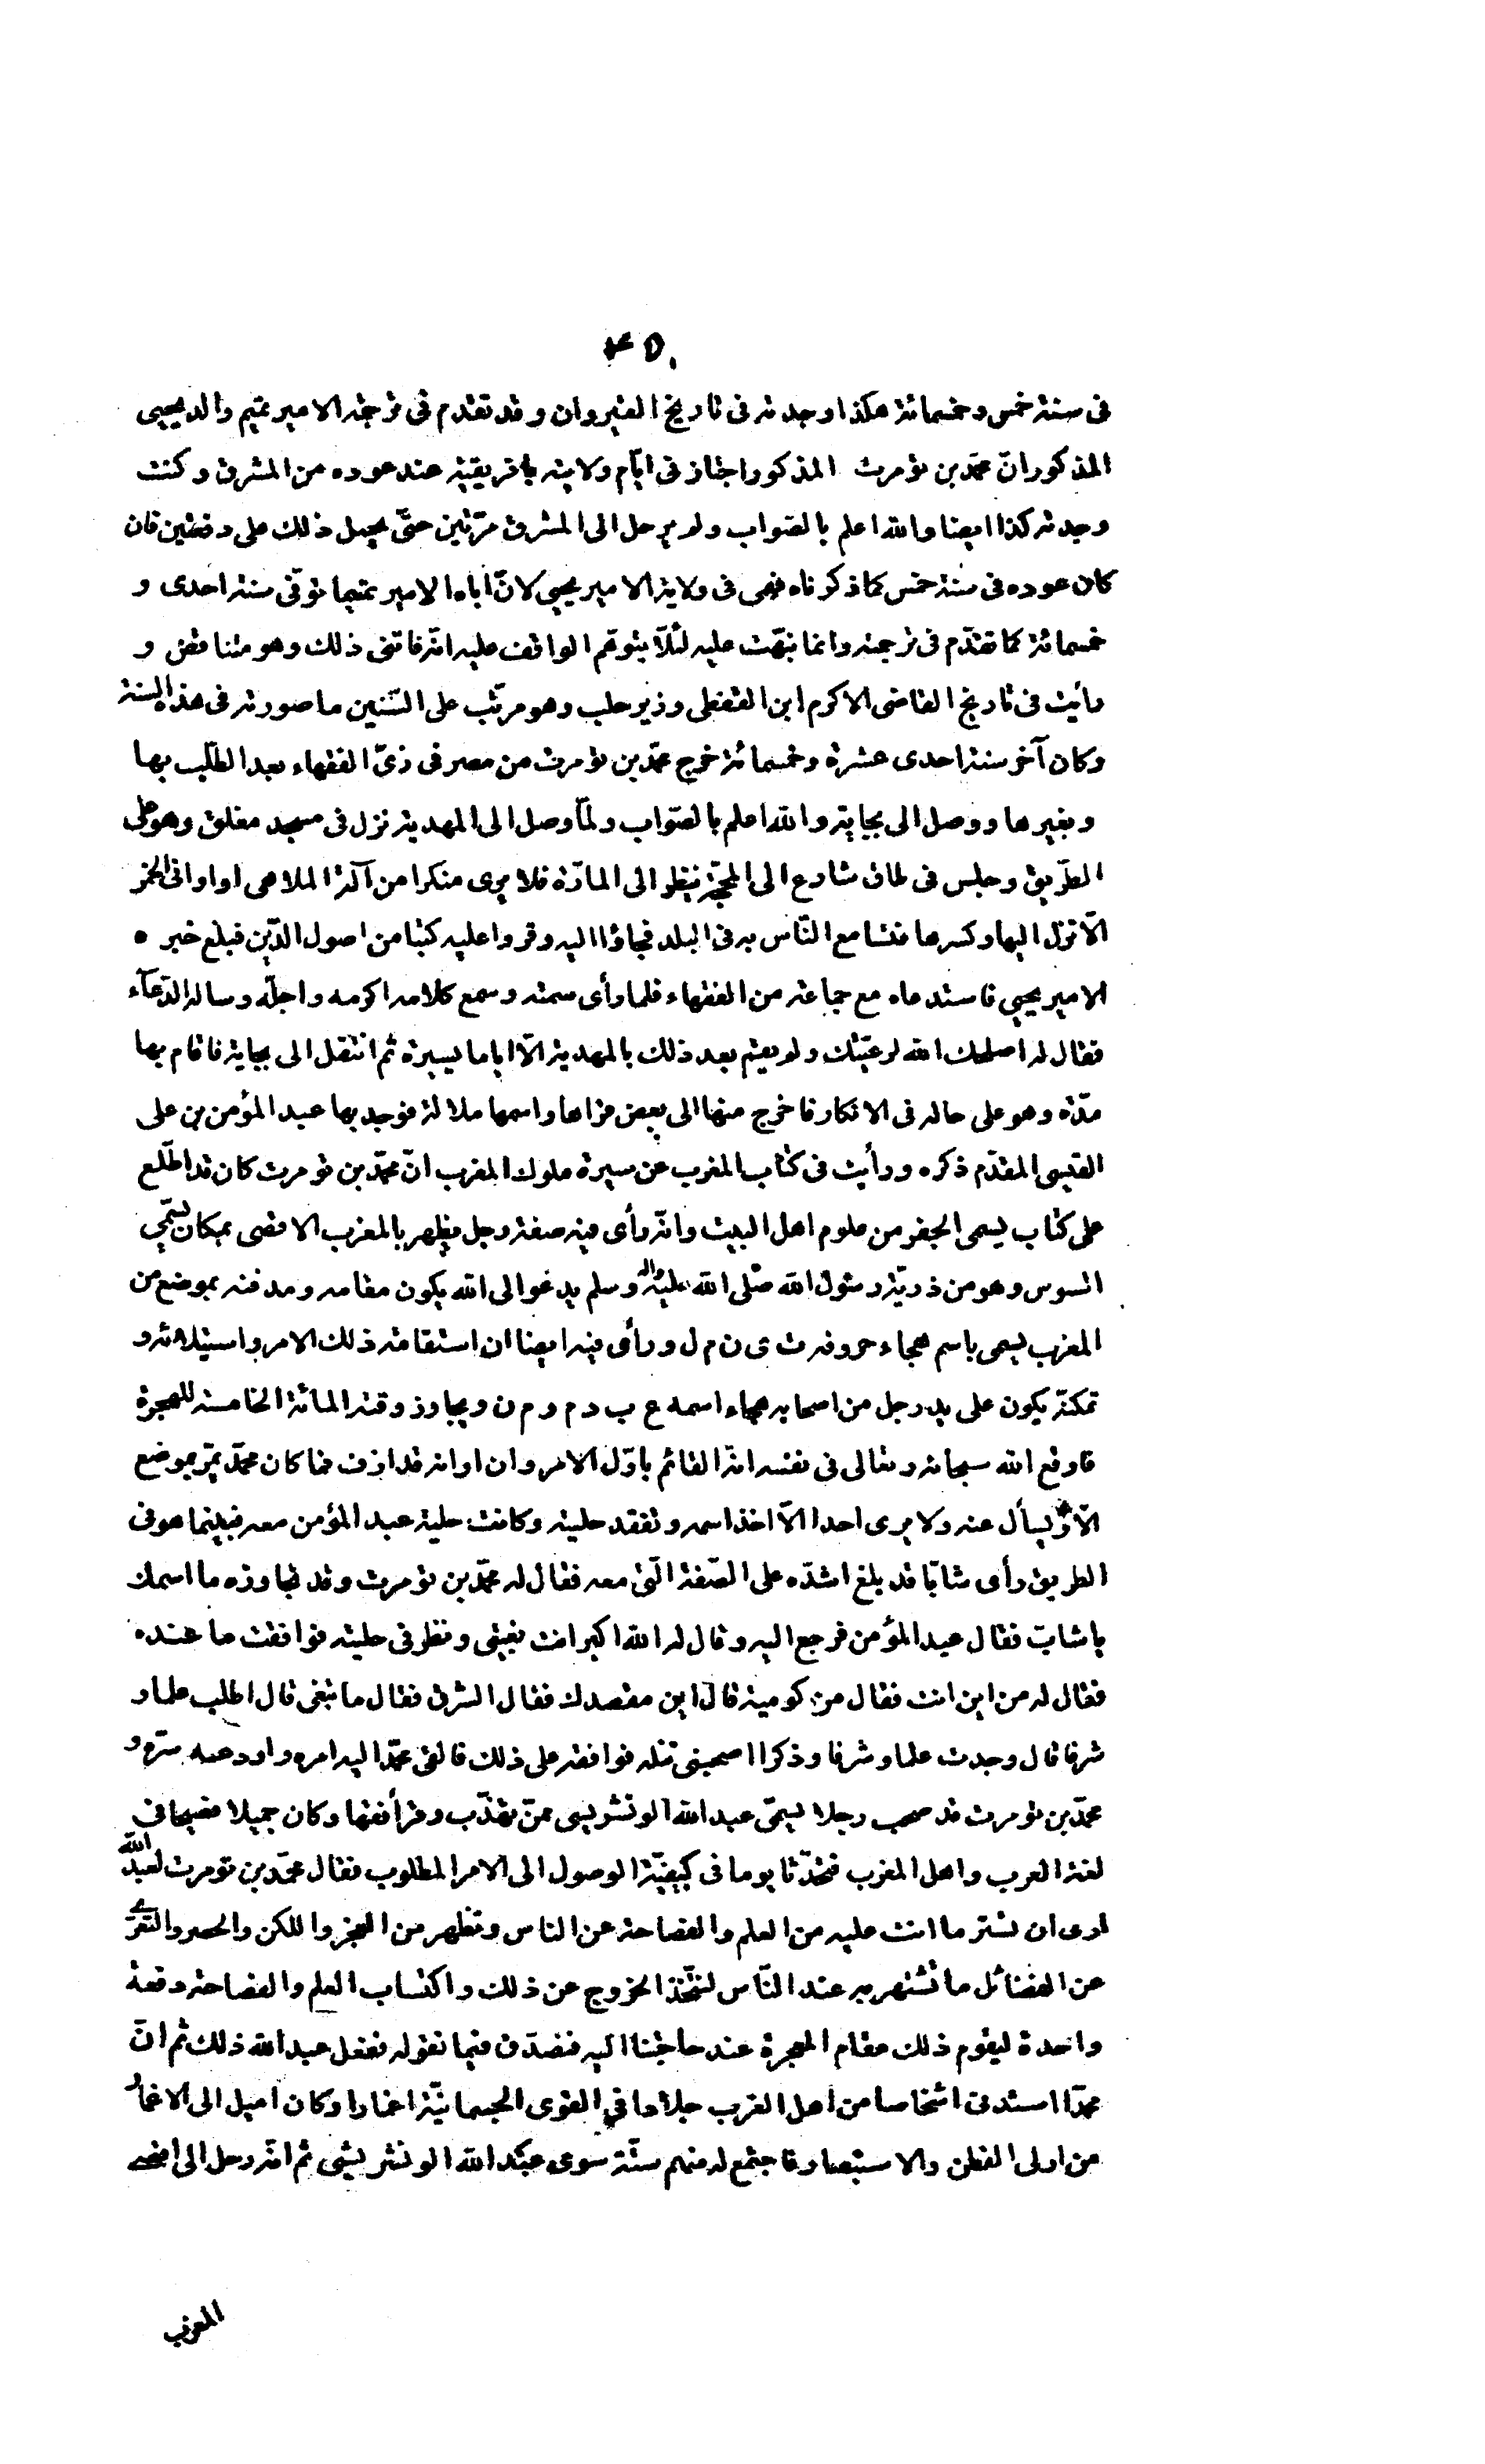 ٤٥٠
فى سنة خمس وخمسمائة هكذا وجدته فى تاريخ القيروان وقد تقدم فى ترجمة الامير تميم والد يحيى
المذكور انّ محمّد بن تومرت المذكور اجتاز فى ايّام ولايته بافريقية عند عوده من المشرق وكنت
وجدته كذا ايضا والله اعلم بالصّواب ولم يرحل الى المشرق مرّتين حتّى يحمل ذلك على دفعتين فان
كان عوده فى سنة خمس كما ذكرناه فهى فى ولاية الامير يحيى لانّ اباه الامير تميما توفّى سنة احدى و
خمسمائة كما تقدّم فى ترجمته وانما نبّهت عليه لئلّا يتوهّم الواقف عليه انّه فاتنى ذلك وهو متناقض و
رأيت فى تاريخ القاضى الاكرم ابن القفطى وزير حلب وهو مرتّب على السّنين ما صورته فى هذه السنة
وكان آخر سنة احدى عشرة وخمسمائة خرج محمّد بن تومرت من مصر فى زىّ الفقهاء بعد الطّلب بها
وبغيرها ووصل الى بجاية والله اعلم بالصّواب ولمّا وصل الى المهدية نزل فى مسجد مغلق وهو على
الطّريق وجلس فى طاق شارع الى المحجّة ينظر الى المارّة فلا يرى منكرا من آلة الملاهى او اوانى الخمر
الّا نزل اليها وكسرها فتسامع النّاس به فى البلد فجاؤا اليه وقرءوا عليه كتبا من اصول الدّين فبلغ خبره
الامير يحيى فاستدعاه مع جماعة من الفقهاء فلما رأى سمته وسمع كلامه اكرمه واجلّه وساله الدّعآء
فقال له اصلحك الله لرعيّتك ولم يقم بعد ذلك بالمهدية الّا اياما يسيرة ثم انتقل الى بجاية فاقام بها
مدّة وهو على حاله فى الانكار فاخرج منها الى بعض قراها واسمها ملالة فوجد بها عبد المؤمن بن على
القيسى المقدّم ذكره ورأيت فى كتاب المغرب عن سيرة ملوك المغرب انّ محمّد بن تومرت كان قد اطّلع
على كتاب يسمى الجفر من علوم اهل البيت وانّه رأى فيه صفة رجل يظهر بالمغرب الاقصى بمكان يسمّى
السوس وهو من ذريّة رسول الله صلّى الله عليه وآله وسلم يدعو الى الله يكون مقامه ومدفنه بموضع من
المغرب يسمى باسم هجاء حروفه ت ى ن م ل ورأى فيه ايضا ان استقامة ذلك الامر واستيلائه و
تمكنّه يكون على يد رجل من اصحابه هجاء اسمه ع ب د م و م ن ويجاوز وقته المائة الخامسة للهجرة
فاوقع الله سبحانه وتعالى فى نفسه انّه القائم باوّل الامر وان اوانه قد ازف فما كان محمّد يمرّ بموضع
الّا ويسأل عنه ولا يرى احدا الّا اخذ اسمه وتفقد حليته وكانت حلية عبد المؤمن معه فبينما هو فى
الطريق رأى شابّا قد بلغ اشدّه على الصّفة الّتى معه فقال له محمّد بن تومرت وقد تجاوزه ما اسمك
يا شابّ فقال عبد المؤمن فرجع اليه وقال له الله اكبر انت بغيتى ونظر فى حليته فوافقت ما عنده
فقال له من اين انت فقال من كومية قال اين مقصدك فقال الشرق فقال ما تبغى قال اطلب علما و
شرفا قال وجدت علما وشرفا وذكرا اصحبنى تنله فوافقه على ذلك فالقى محمّد اليه امره واودعه سرّه و
محمّد بن تومرت قد صحب رجلا يسمّى عبد الله الونشريسى ممّن تهذّب وقرأ فقها وكان جميلا فصيحا فى
لغة العرب واهل المغرب فتحدّثا يوما فى كيفيّة الوصول الى الامر المطلوب فقال محمّد بن تومرت لعبد الله
ارى ان تستر ما انت عليه من العلم والفصاحة عن الناس وتظهر من العجز واللكن والحصر والتعرّى
عن الفضائل ما تشتهر به عند النّاس لنتّخذ الخروج عن ذلك واكتساب العلم والفصاحة دفعة
واحدة ليقوم ذلك مقام المعجزة عند حاجتنا اليه فنصدّق فيما نقوله ففعل عبد الله ذلك ثم انّ
محمّدا استدنى اشخاصا من اهل الغرب جلادا فى القوى الجسمانيّة اغمارا وكان اميل الى الاغمار
من اولى الفطن والاستبصار فاجتمع له منهم ستّة سوى عبد الله الونشريشى ثم انّه رحل الى اقصى
المغرب